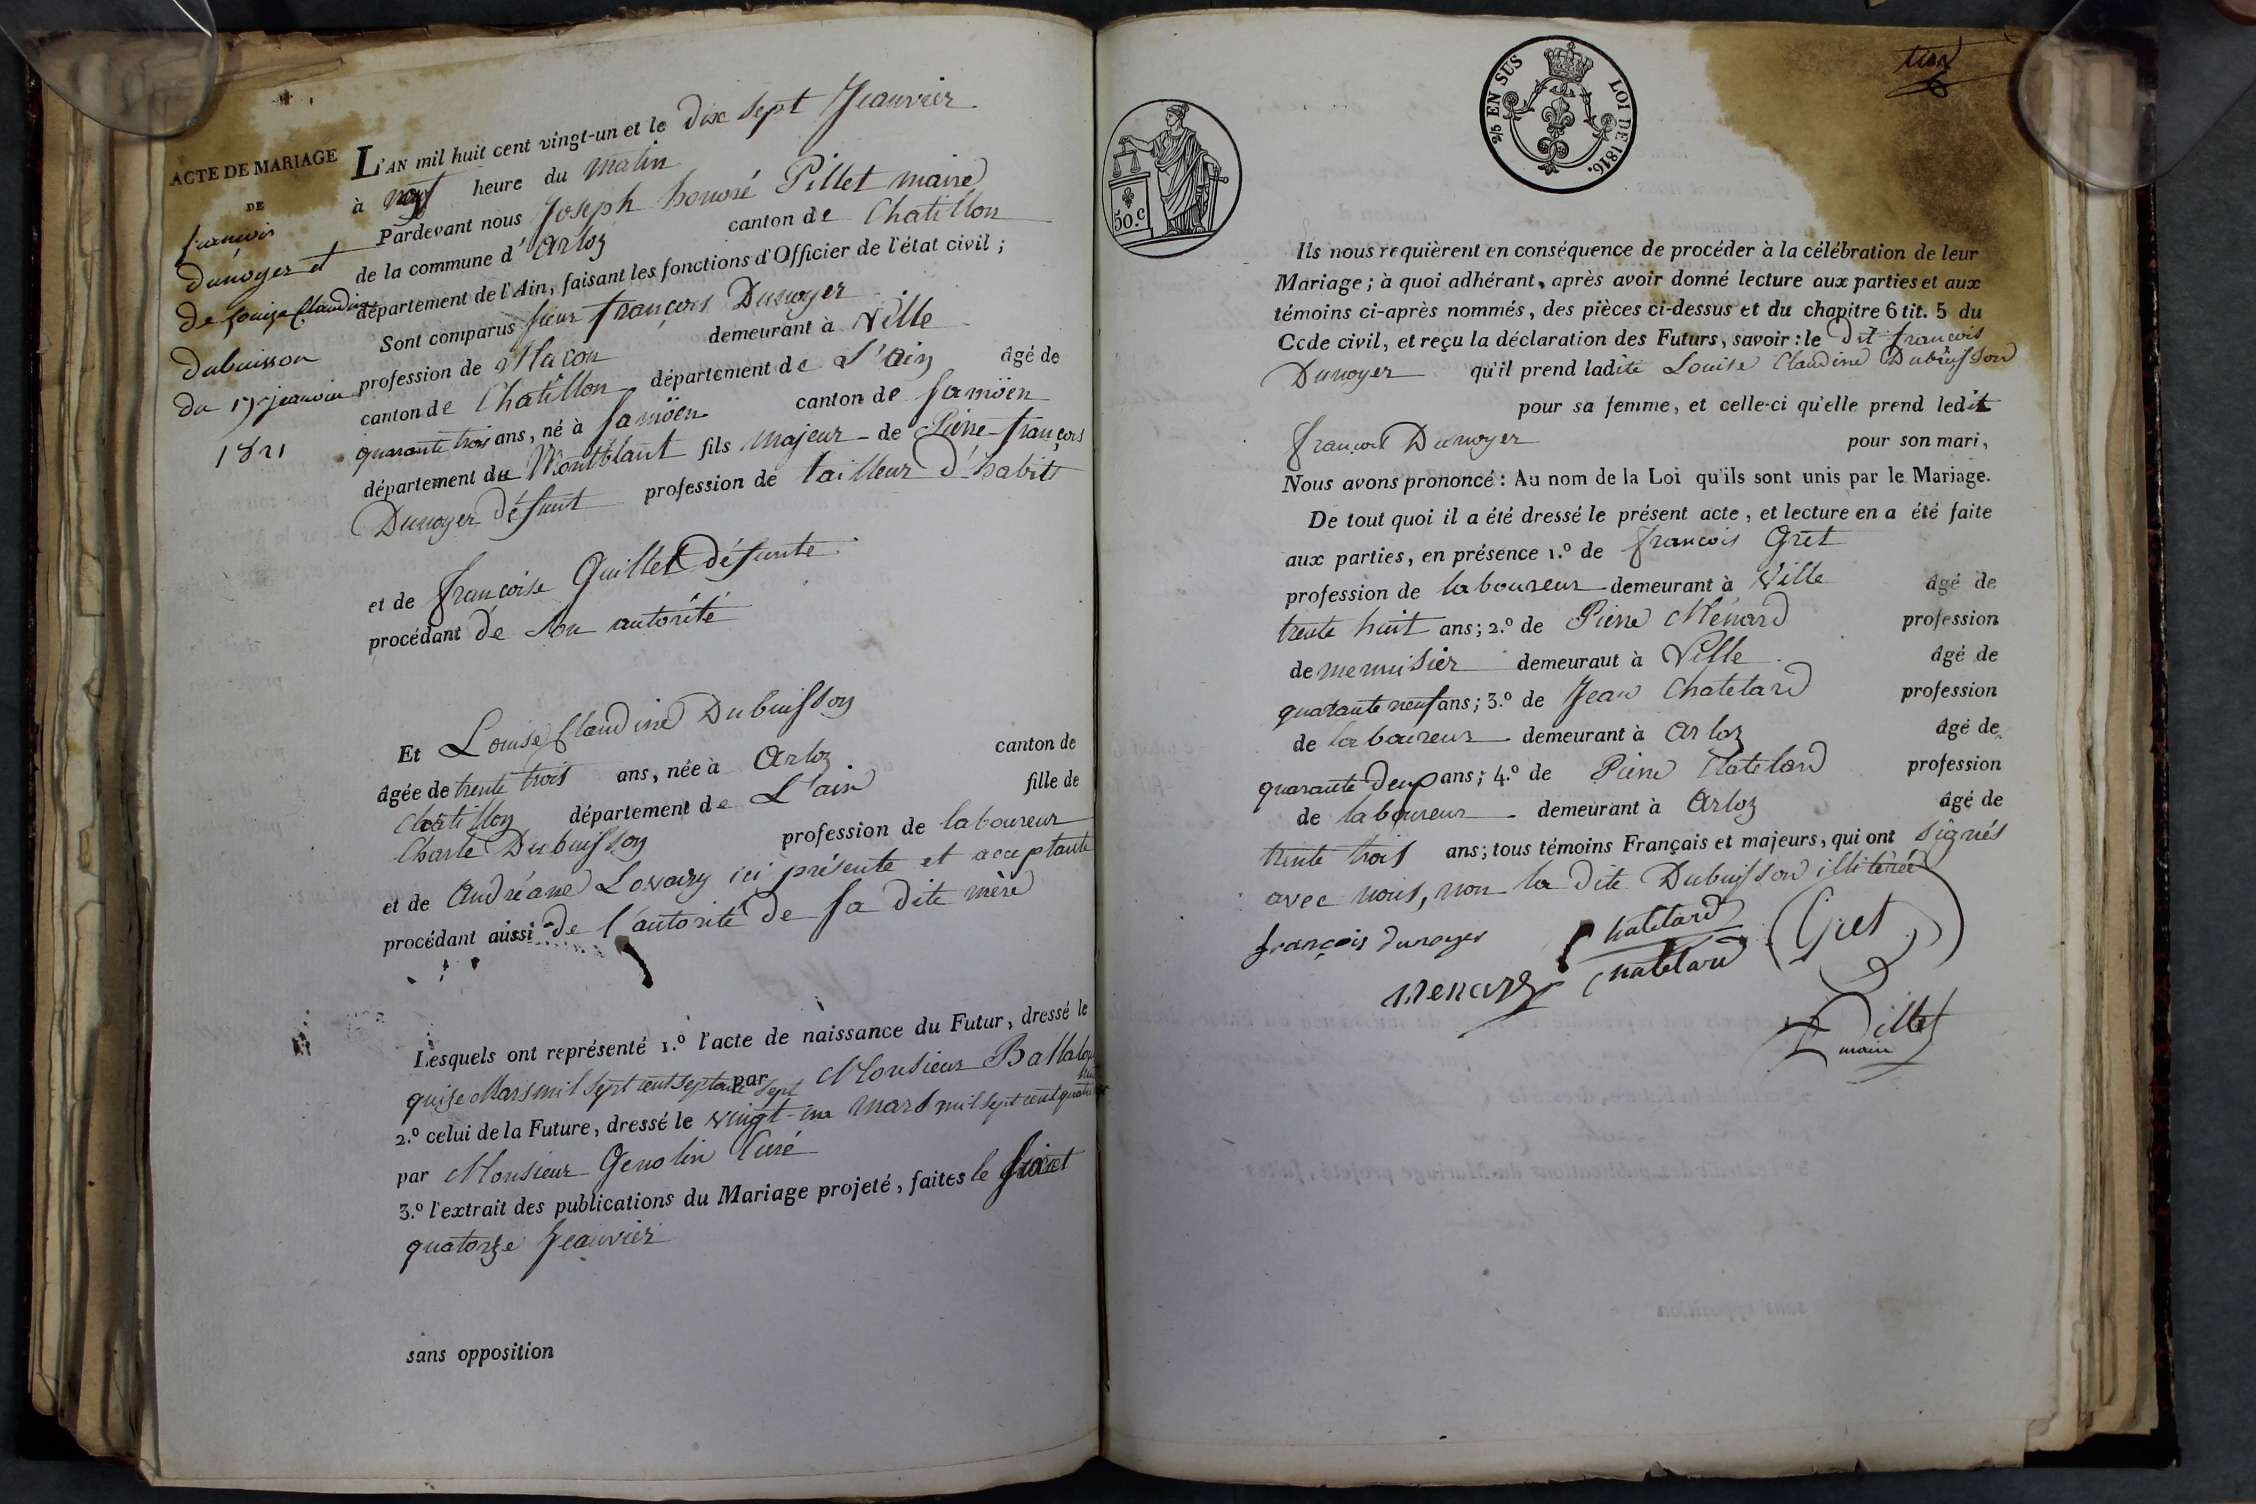 ACTE DE MARIAGE
DE
françois
dunoyer et
de Louise Claudine
dubuisson
du 17 jeanvier
1821
L'AN mil huit cent vingt-un et le dix sept Jeanvier
à neuf heure du matin
Pardevant nous Joseph honoré Pillet maire
de la commune d'Arloz canton de Chatillon
département de l'Ain, faisant les fonctions d'Officier de l'état civil ;
Sont comparus sieur françois Dunoyer
profession de Macon demeurant à Ville
canton de Chatillon département de L'ain âgé de
quarante trois ans, né à Samöen canton de Samöen
département du Montblant fils majeur de Pierre-françois
Dunoyer défunt profession de tailleur d'habits
et de françoise Guillet défunte
procédant de son autorité
Et Louise Claudine Dubuisson
âgée de trente trois ans, née à Arloz canton de
Chatillon département de L'ain fille de
Charle Dubuisson profession de laboureur
et de Andréane ici présente et acceptante
procédant aussi de l'autorité de sa dite mère
Lesquels ont représenté 1.º l'acte de naissance du Futur, dressé le
quise Mars mil sept cent septante sept par Monsieur
2.º celui de la Future, dressé le vingt-un mars mil sept cent quatre
par Monsieur Genolin Curé
3.º l'extrait des publications du Mariage projeté, faites le sept et
quatorze Jeanvier
sans opposition
50.c
2/5 EN SUS LOI DE 1816.
Ils nous requièrent en conséquence de procéder à la célébration de leur
Mariage ; à quoi adhérant, après avoir donné lecture aux parties et aux
témoins ci-après nommés, des pièces ci-dessus et du chapitre 6 tit. 5 du
Code civil, et reçu la déclaration des Futurs, savoir : le dit françois
Dunoyer qu'il prend ladite Louise Claudine Dubuisson
pour sa femme, et celle-ci qu'elle prend ledit
françois Dunoyer pour son mari,
Nous avons prononcé : Au nom de la Loi qu'ils sont unis par le Mariage.
De tout quoi il a été dressé le présent acte, et lecture en a été faite
aux parties, en présence 1.º de françois Gret
profession de laboureur demeurant à Ville âgé de
trente huit ans ; 2.º de Pierre Ménard profession
de menuisier demeuraut à Ville âgé de
quarante neuf ans ; 3.º de Jean Chatelard profession
de laboureur demeurant à Arloz âgé de
quarante deux ans ; 4.º de Pierre Chatelard profession
de laboureur demeurant à Arloz âgé de
trente trois ans ; tous témoins Français et majeurs, qui ont signés
avec nous, non la dite Dubuisson illitérée
françois dunoyer Chatelard Gret
Menard Chatelard
Pillet
maire